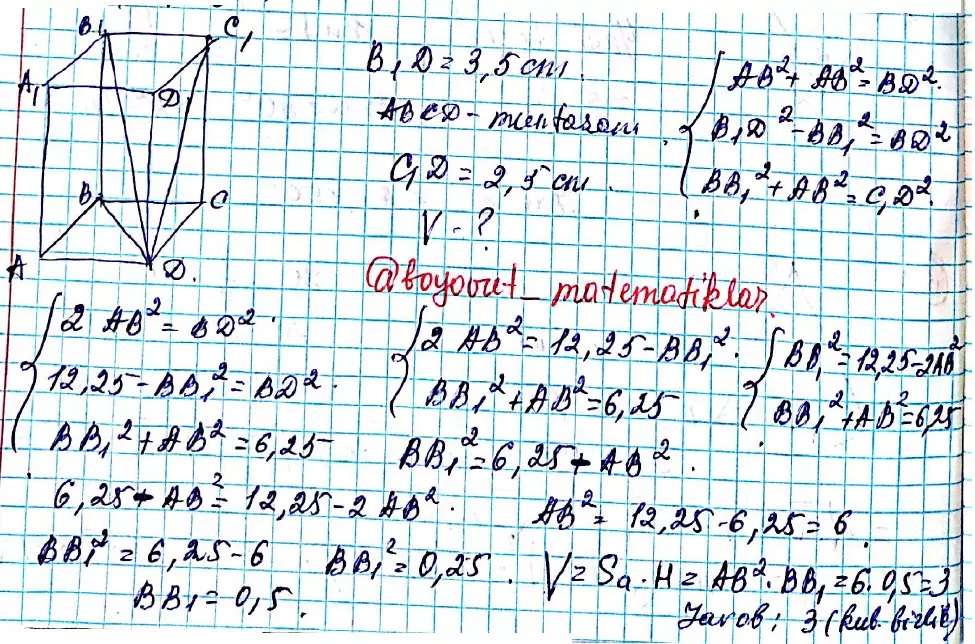 B₁ C₁
A₁ D₁
B C
A D.
B₁D = 3,5 cm.
ABCD - muntazam
C₁D = 2,5 cm.
V - ?
{ AB² + AB² = BD².
B₁D² - BB₁² = BD²
BB₁² + AB² = C₁D².
@boyovut_matematiklar.
{ 2 AB² = BD².
12,25 - BB₁² = BD².
BB₁² + AB² = 6,25
{ 2 AB² = 12,25 - BB₁².
BB₁² + AB² = 6,25
{ BB₁² = 12,25 - 2AB²
BB₁² + AB² = 6,25
BB₁² = 6,25 - AB².
6,25 - AB² = 12,25 - 2 AB².
AB² = 12,25 - 6,25 = 6.
BB₁² = 6,25 - 6 BB₁² = 0,25. V = Sa · H = AB² · BB₁ = 6 · 0,5 = 3
BB1 = 0,5.
Javob: 3 (kub. birlik)